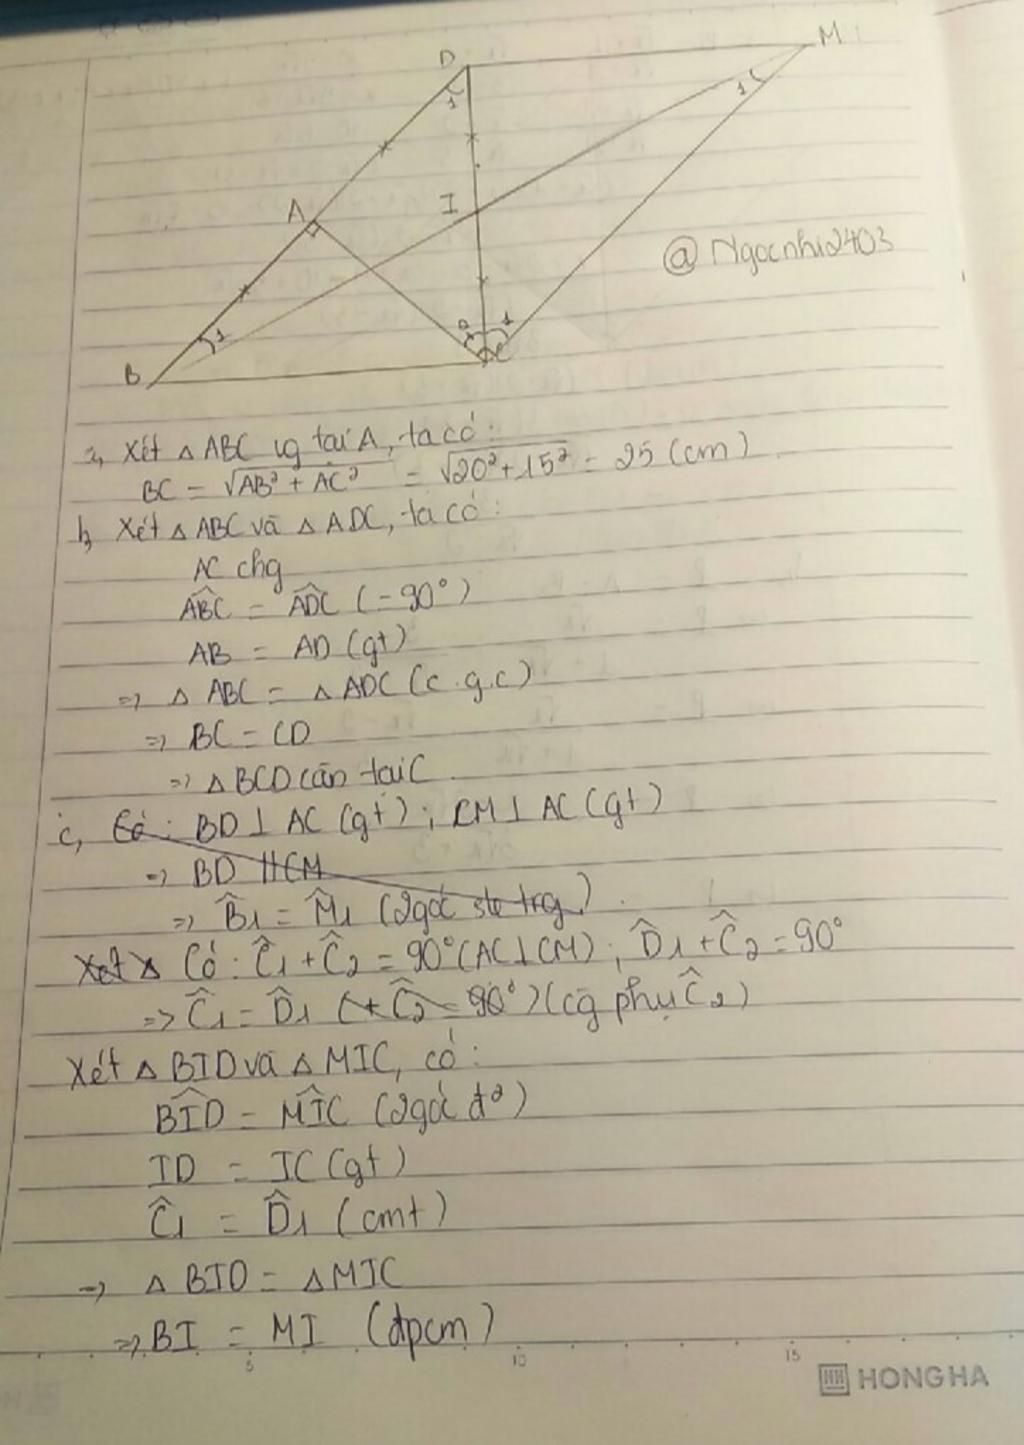 D
M
1
1
A
I
@Ngocnhi2403
2
1
1
B
C
a, Xét △ ABC vg tại A, ta có:
BC = √AB² + AC² = √20² + 15² = 25 (cm)
b, Xét △ ABC và △ ADC, ta có:
AC chg
ABC = ADC (= 90°)
AB = AD (gt)
=> △ ABC = △ ADC (c.g.c)
=> BC = CD
=> △ BCD cân tại C
c, Có: BD ⊥ AC (gt); CM ⊥ AC (gt)
=> BD // CM
=> B̂1 = M̂1 (2góc slt trg)
Xét △ Có: Ĉ1 + Ĉ2 = 90° (AC ⊥ CM); D̂1 + Ĉ2 = 90°
=> Ĉ1 = D̂1 (+ Ĉ2 = 90°) (cg phụ Ĉ2)
Xét △ BID và △ MIC, có:
BID = MIC (2góc đ²)
ID = IC (gt)
Ĉ1 = D̂1 (cmt)
=> △ BID = △ MIC
=> BI = MI (đpcm)
5 10 15
HH HONG HA